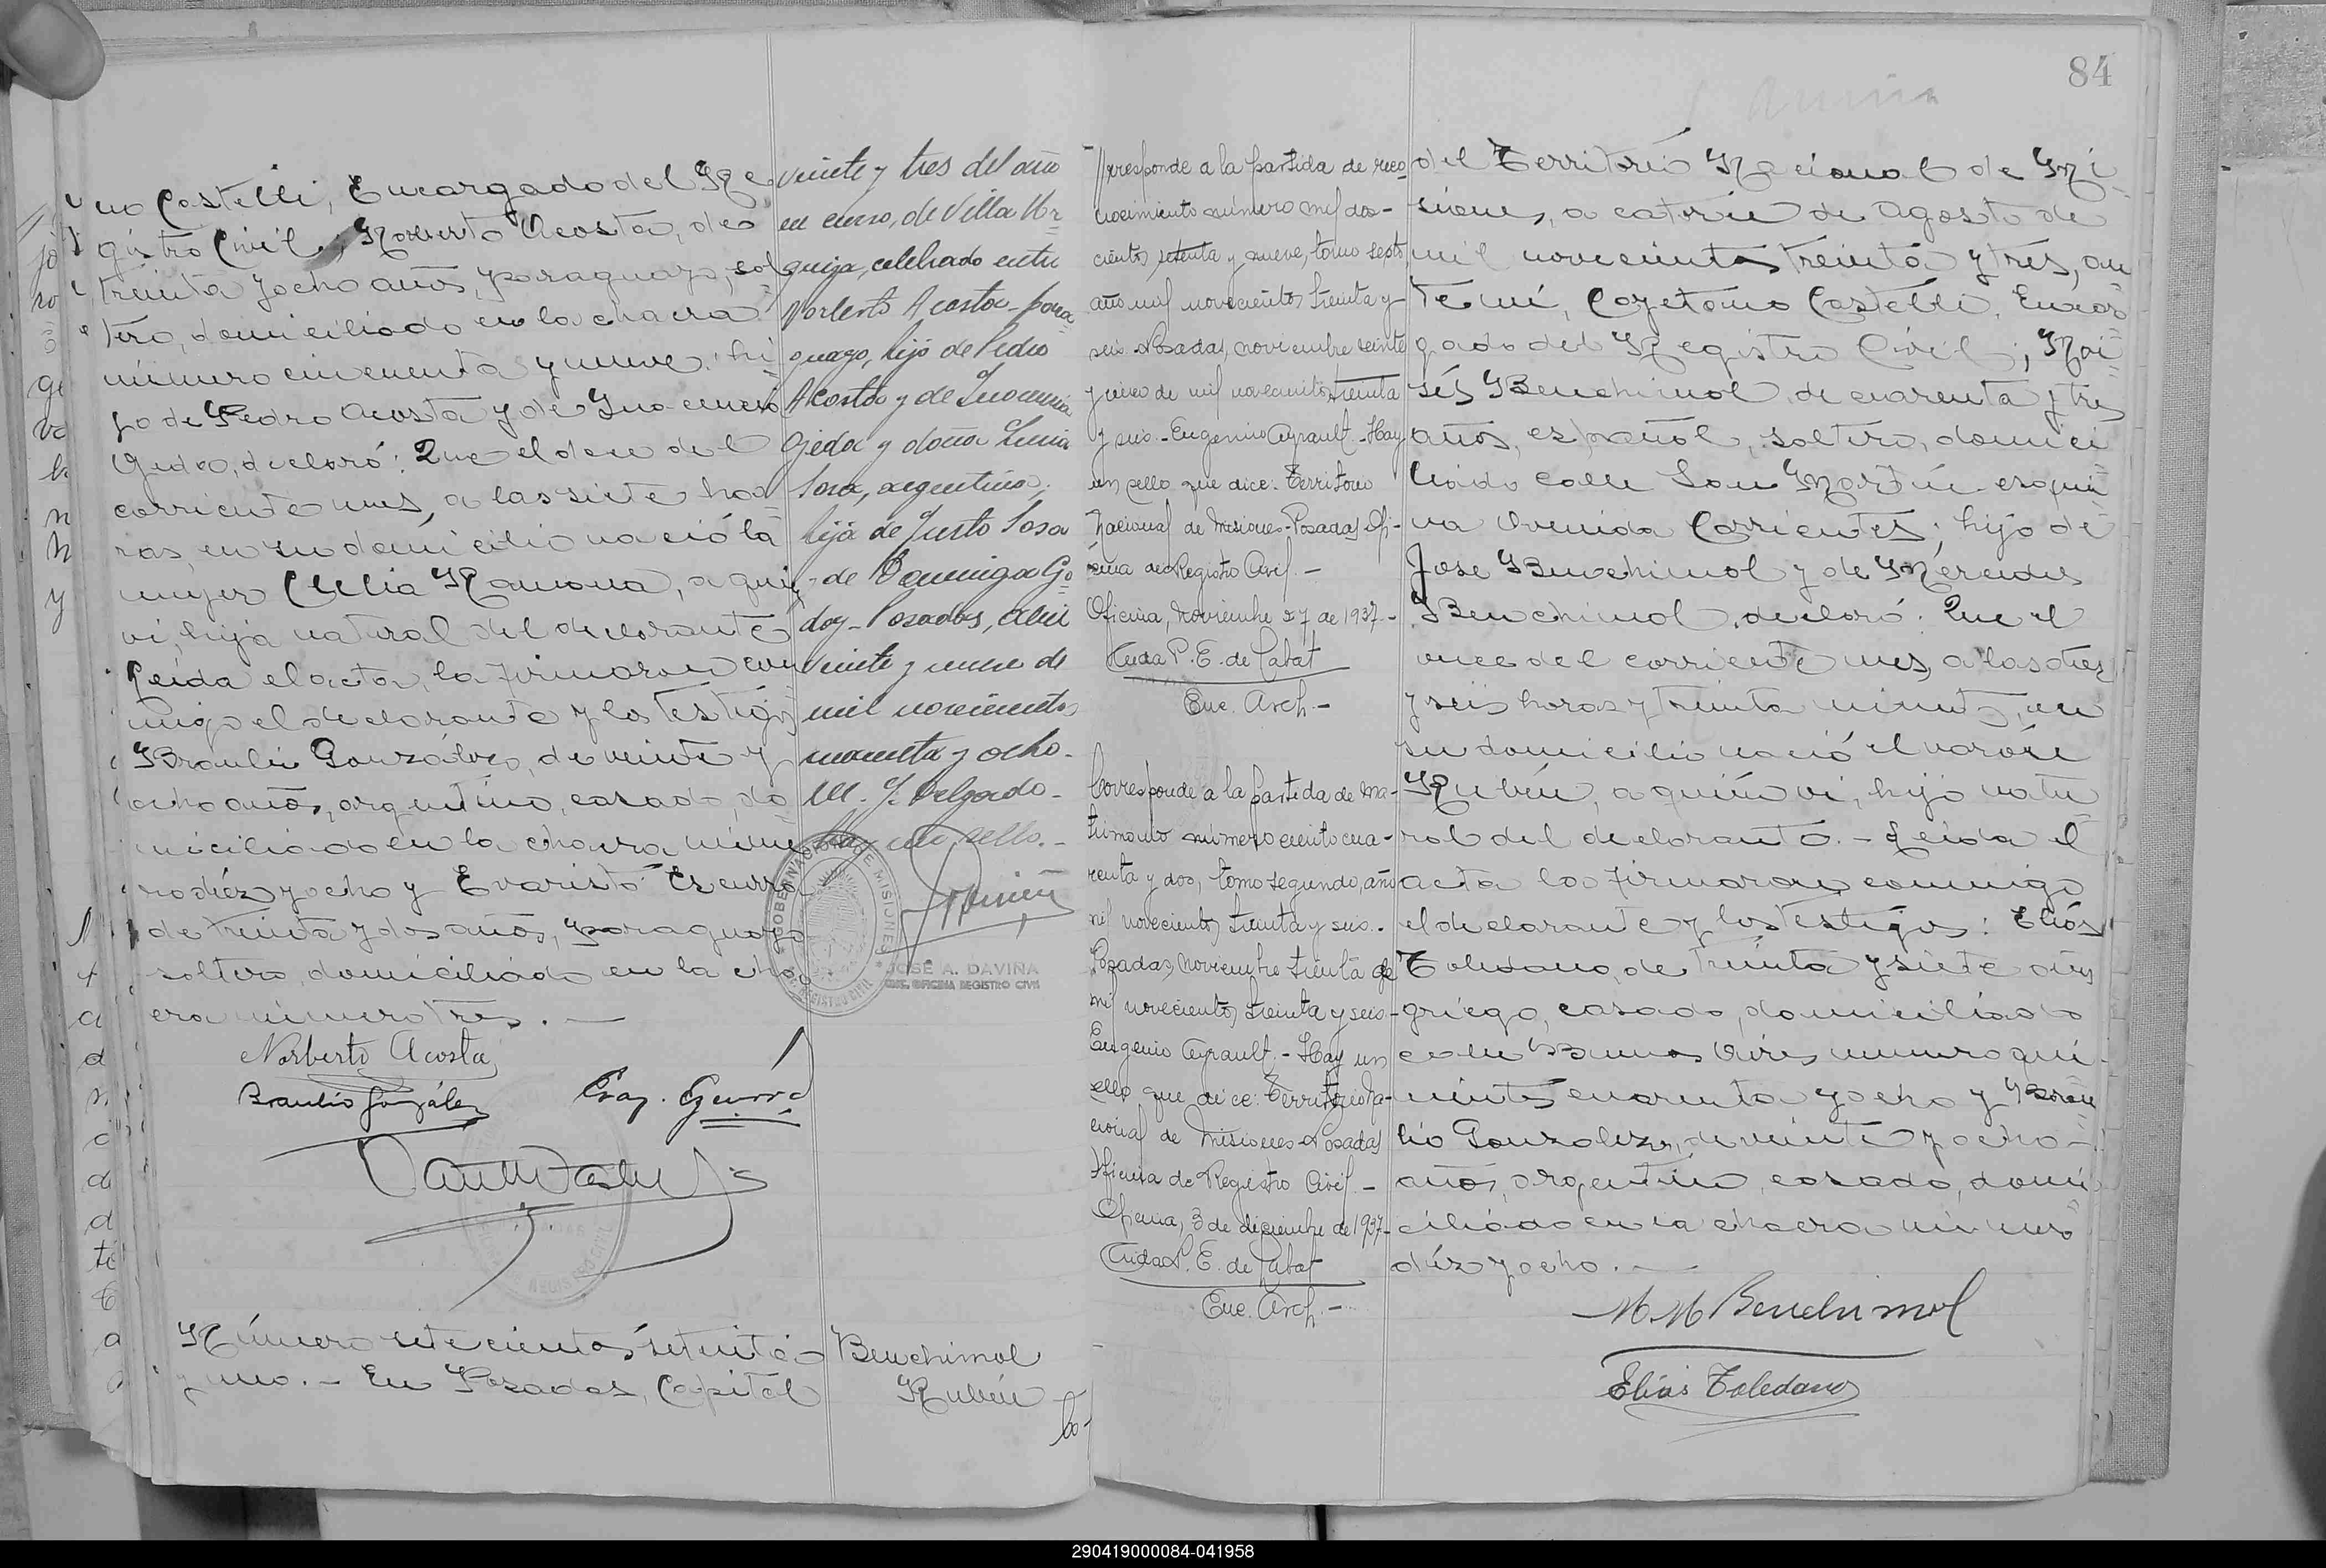 no Castelli, Encargado del Re
gistro Civil, Norberto Acosta, de
treinta y ocho años, paraguayo, sol
tero, domiciliado en la chacra
número cincuenta y nueve, hi
jo de Pedro Acosta y de Inocencia
Ojeda, declaró: Que el doce del
corriente mes, a las siete ho
ras, en su domicilio nació la
mujer Clelia Ramona, a quien
vi, hija natural del declarante
Leida el acta, la firmaron con
migo el declarante y los testigos
Braulio González, de veinte y
ocho años, argentino, casado, do
miciliado en la chacra núme
ro diéz y ocho y Evaristo Escurra
de treinta y dos años, paraguayo
soltero, domiciliado en la cha
cra número tres. —
Norberto Acosta
Braulio González
Número setecientos setenta
y uno. — En Posadas, Capital
veinte y tres del año
en curso, de Villa Ur
quiza, celebrado entre
Norberto Acosta - para
guayo, hijo de Pedro
Acosta y de Inocencia
Ojeda y doña Lucia
Sosa, argentina,
hija de Justo Sosa
de Dominga Go
doy - Posadas, Abril
veinte y nueve de
mil novecientos
cuarenta y ocho -
M. J. Delgado -
Hay un sello. -
GOBERNACION DE MISIONES
REGISTRO CIVIL
JOSÉ A. DAVIÑA
ENC. OFICINA REGISTRO CIVIL
Benchimol
Rubén
Co-
84
rresponde a la partida de reco-
nocimiento número mil dos-
cientos setenta y nueve, tomo sexto,
año mil novecientos treinta y
seis. Posadas, noviembre veinte
y cinco de mil novecientos treinta
y seis. - Eugenio Ayrault - Hay
un sello que dice: Territorio
Nacional de Misiones - Posadas Ofi-
cina de Registro Civil. -
Oficina, Noviembre 27 de 1937. -
Aida P. E. de Labat
Enc. Arch. -
Corresponde a la partida de ma-
trimonio número ciento cua-
renta y dos, tomo segundo, año
mil novecientos treinta y seis. -
Posadas, noviembre treinta de
mil novecientos treinta y seis -
Eugenio Ayrault. - Hay un
sello que dice: Territorio Na-
cional de Misiones - Posadas
Oficina de Registro Civil. -
Oficina, 3 de diciembre de 1937 -
Aida P. E. de Labat
Enc. Arch. -
del Territorio Nacional de Mi
siones, a catorce de Agosto de
mil novecientos treinta y tres, an
te mí, Cayetano Castelli, Encar
gado del Registro Civil; Moi
sés Benchimol de cuarenta y tres
años, español, soltero, domici
liado calle San Martín esqui
na Avenida Corrientes; hijo de
José Benchimol y de Mercedes
Benchimol, declaró: Que el
once del corriente mes, a las diez
y seis horas y treinta minutos, en
su domicilio nació el varón
Rubén, a quién vi, hijo natu
ral del declarante. - Leida el
acta la firmaron conmigo
el declarante y los testigos: Elías
Toledano, de treinta y siete años
griego, casado, domiciliado
calle Buenos Aires número qui
nientos cuarenta y ocho y Brau
lio González, de veinte y ocho -
años, argentino, casado, domi
ciliado en la chacra número
diéz y ocho. —
M M Benchimol
Elias Toledano
290419000084-041958